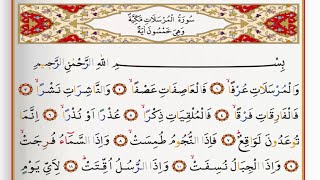 سُورَةُ الْمُرْسَلَاتِ مَكِّيَّةٌ
وَهِيَ خَمْسُونَ اٰيَةً
بِسْمِ اللّٰهِ الرَّحْمٰنِ الرَّحٖيمِ
وَالْمُرْسَلَاتِ عُرْفًاۙ ١ فَالْعَاصِفَاتِ عَصْفًاۙ ٢ وَالنَّاشِرَاتِ نَشْرًاۙ ٣
فَالْفَارِقَاتِ فَرْقًاۙ ٤ فَالْمُلْقِيَاتِ ذِكْرًاۙ ٥ عُذْرًا اَوْ نُذْرًاۙ ٦ اِنَّمَا
تُوعَدُونَ لَوَاقِعٌۜ ٧ فَاِذَا النُّجُومُ طُمِسَتْۙ ٨ وَاِذَا السَّمَٓاءُ فُرِجَتْۙ
٩ وَاِذَا الْجِبَالُ نُسِفَتْۙ ١٠ وَاِذَا الرُّسُلُ اُقِّتَتْۜ ١١ لِاَيِّ يَوْمٍ